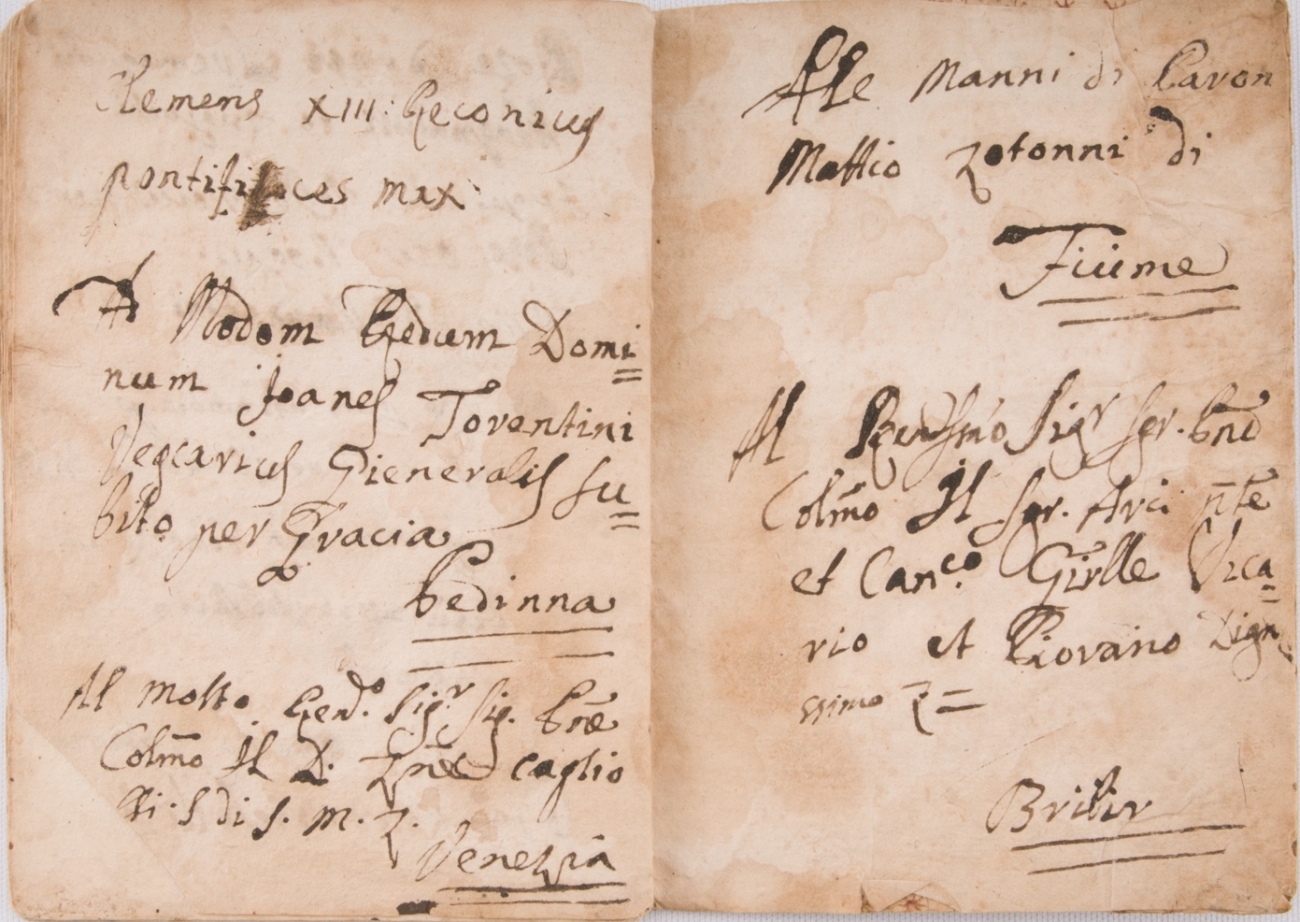 Clemens XIII: Reconicus
pontifi ces max
A Modom Redum Domi=
num Joanes Torentini
Vegcarius Gieneralis su=
bito per Gracia
Bedinna
Al molto Rend.o Sigr Sig.
Colm̄o Il D. caglio
S di S. M.
Venezia
Alle Manni di Pavon
Mattio Zotonni di
Fiume
Al Sigr Sgr.
Colm̄o Il Sgr. Arci
et Can.co Girlle Vica=
rio et Piovano Digni
ssimo
Bribir